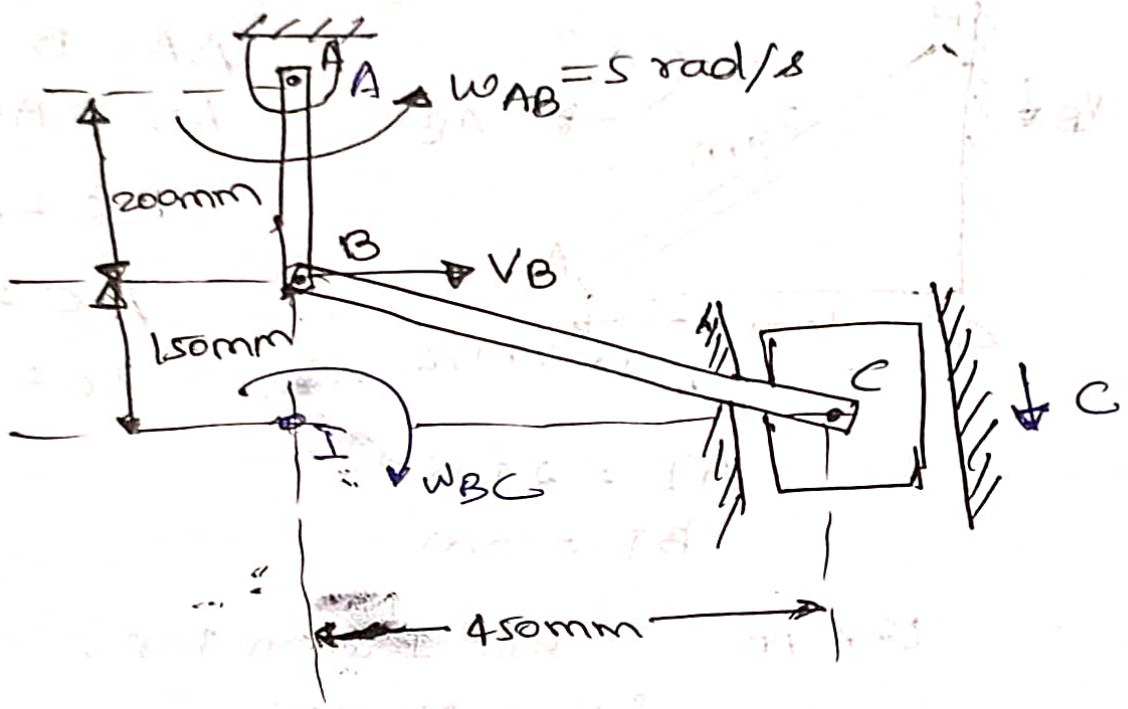 A
A
WAB = 5 rad/s
200mm
B
VB
150mm
C
C
I
WBC
450mm